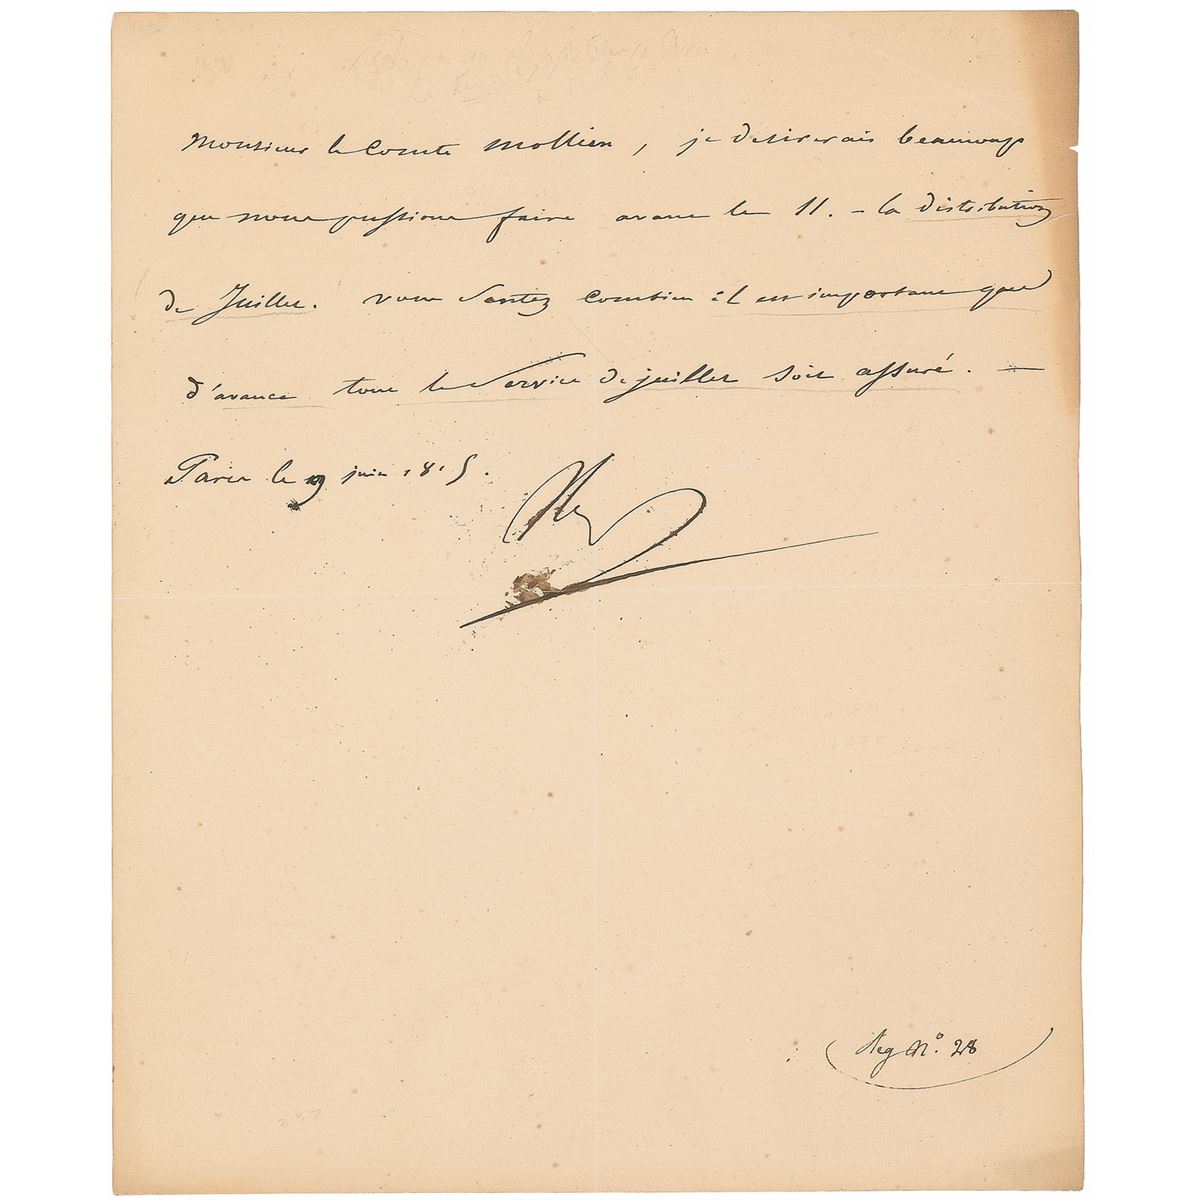 Monsieur le Comte Mollien, je desirerais beaucoup
que nous pussions faire avant le 11. - la distribution
de Juillet. vous sentez combien il est important que
d'avance tout le service de juillet soit assuré. —
Paris le 9 juin 1815.
Reg N°. 28